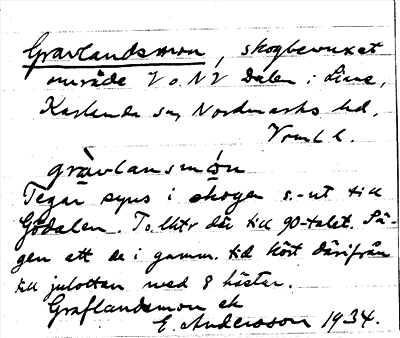 Gravlandsmon, skogbevuxet
område V o NV Dalen i Lium,
Karlanda sn, Nordmarks hd,
Vrml l.
gràvlansmón
Tegar syns i skogen s.-ut till
Gödalen. To. lktr där till 90-talet. Sä-
gen att de i gamm. tid kört därifrån
till julottan med 8 hästar.
Graflandsmon ek
E. Andersson 1934.